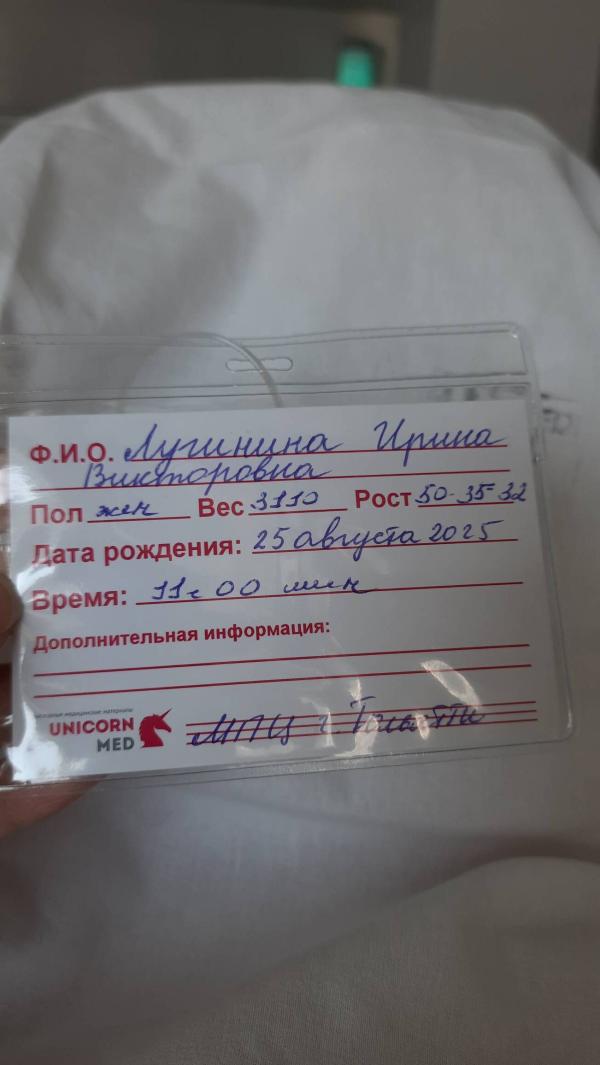 Ф.И.О. Лугинина Ирина
Викторовна
Пол жен Вес 3110 Рост 50-35-32
Дата рождения: 25 августа 2025
Время: 11ч 00 мин
Дополнительная информация:
медицинские материалы
UNICORN
MED
МПЦ г. Тольятти